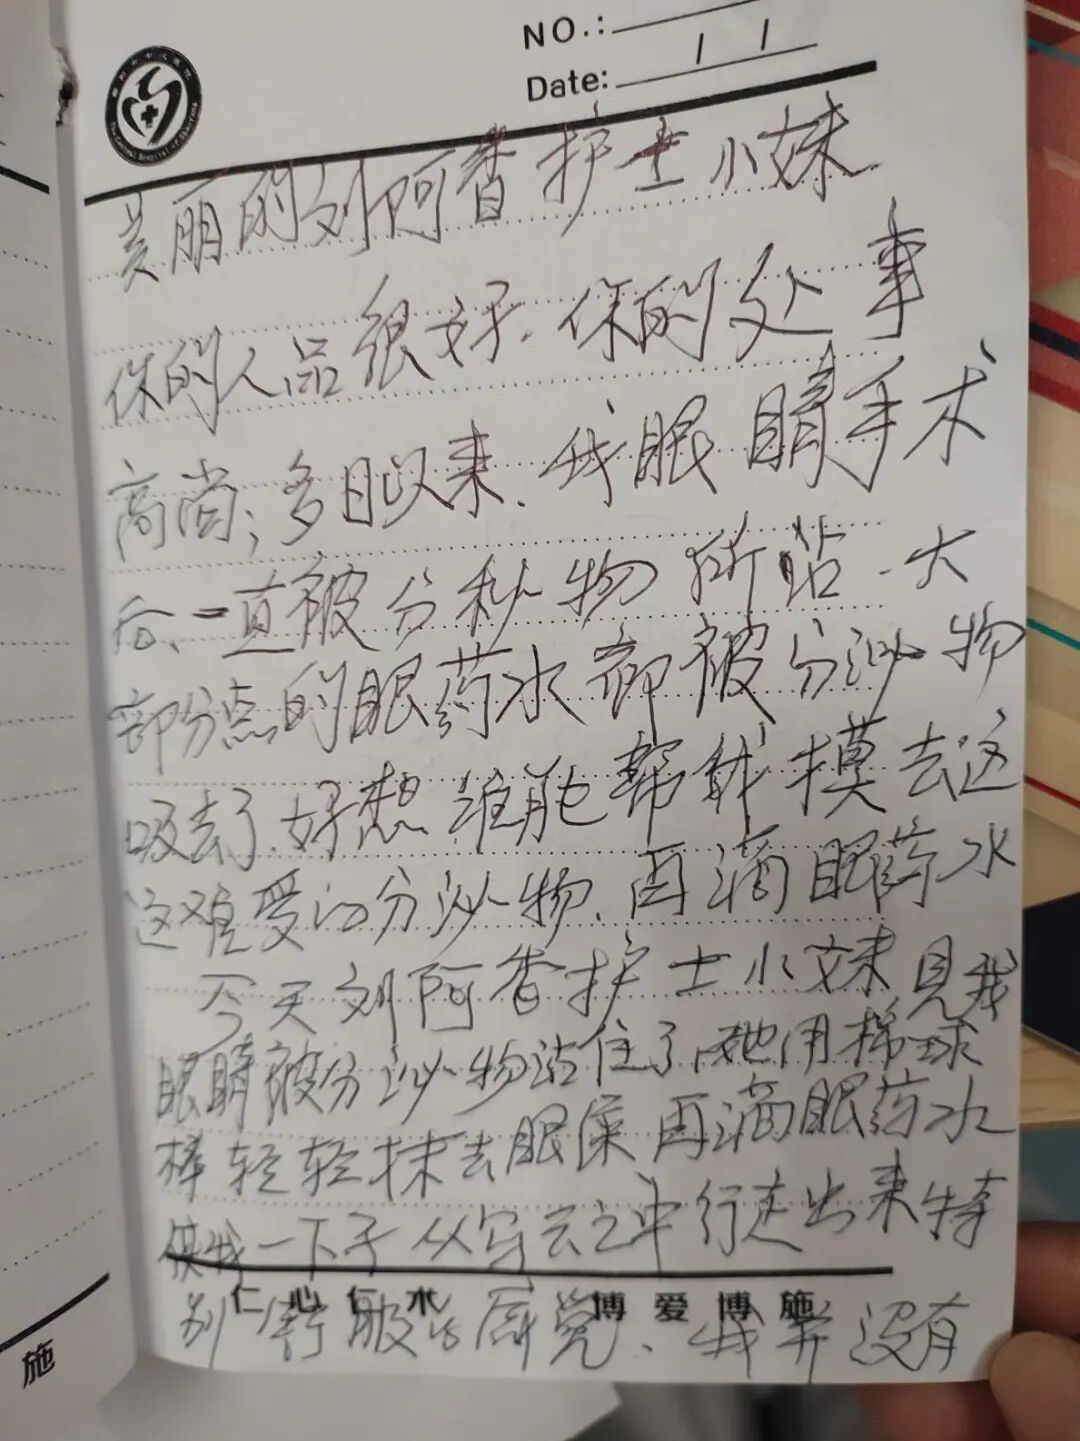 NO.:
Date: 1 1
美丽的刘阿香护士小妹
你的人品很好.你的处事
高尚;多日以来.我眼睛手术
后、一直被分秘物所沾.大
部分点的眼药水都被分泌物
吸去了.好想谁能帮我摸去这
这难受的分泌物.再滴眼药水
今天刘阿香护士小妹见我
眼睛被分泌物沾住了,她用棉球
棒轻轻抹去眼屎再滴眼药水
使我一下子从雾云之中行走出来特
仁心仁术 博爱博施
别舒服的感觉、我并没有
施